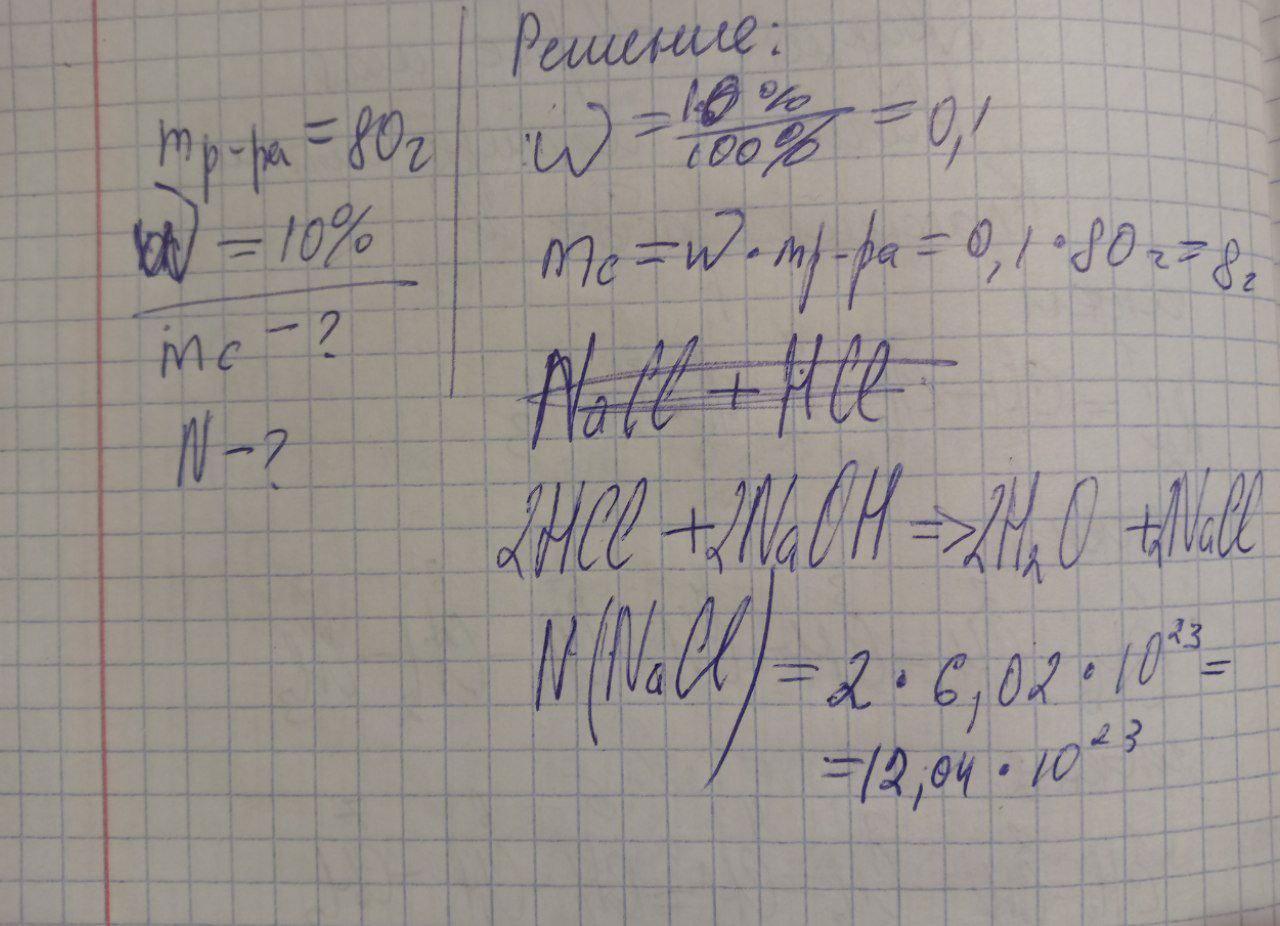 mр-ра = 80г
w = 10%
mс - ?
N - ?
Решение:
w = 10% / 100% = 0,1
mс = w · mр-ра = 0,1 · 80г = 8г
NaCl + HCl
2HCl + 2NaOH => 2H₂O + 2NaCl
N(NaCl) = 2 · 6,02 · 10²³ =
= 12,04 · 10²³